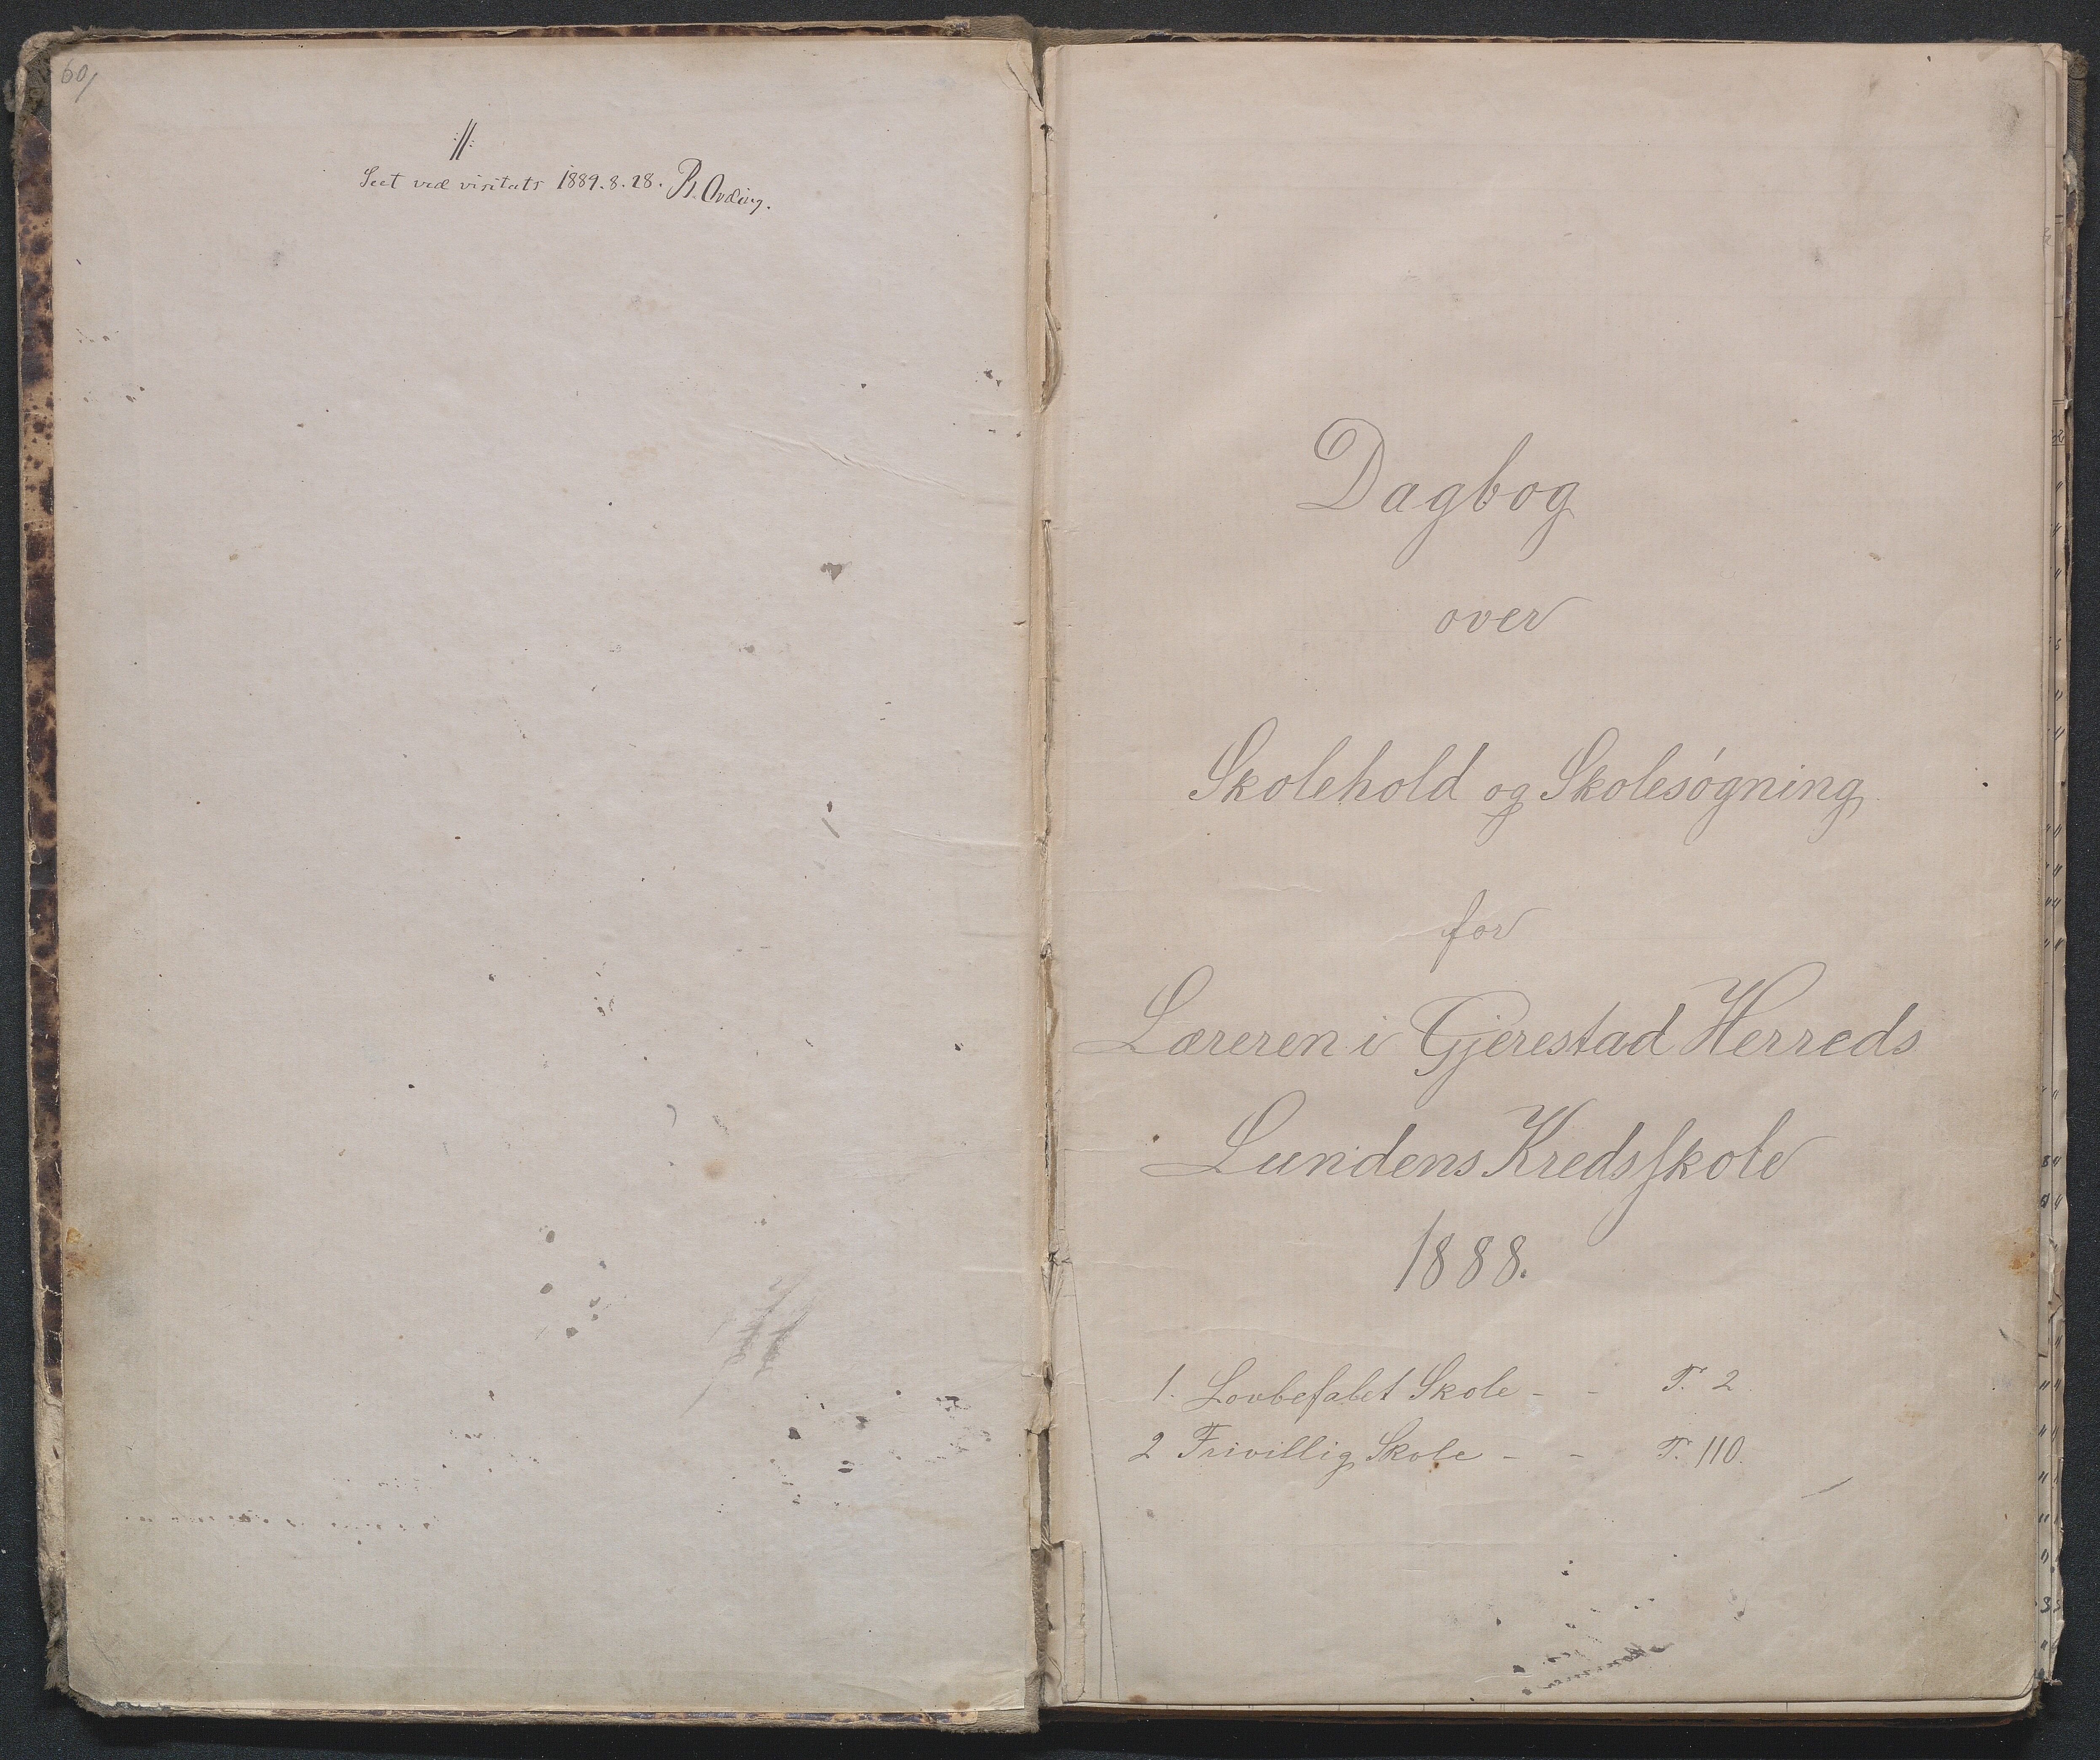 60/
://:
Seet ved visitats 1889. 8. 28. B. Ording.
Dagbog
over
Skolehold og Skolesøgning
for
Læreren i Gjerestad Herreds
Lundens Kredsskole
1888.
1. Lovbefalet Skole - - P. 2
2 Frivillig Skole - - P. 110.